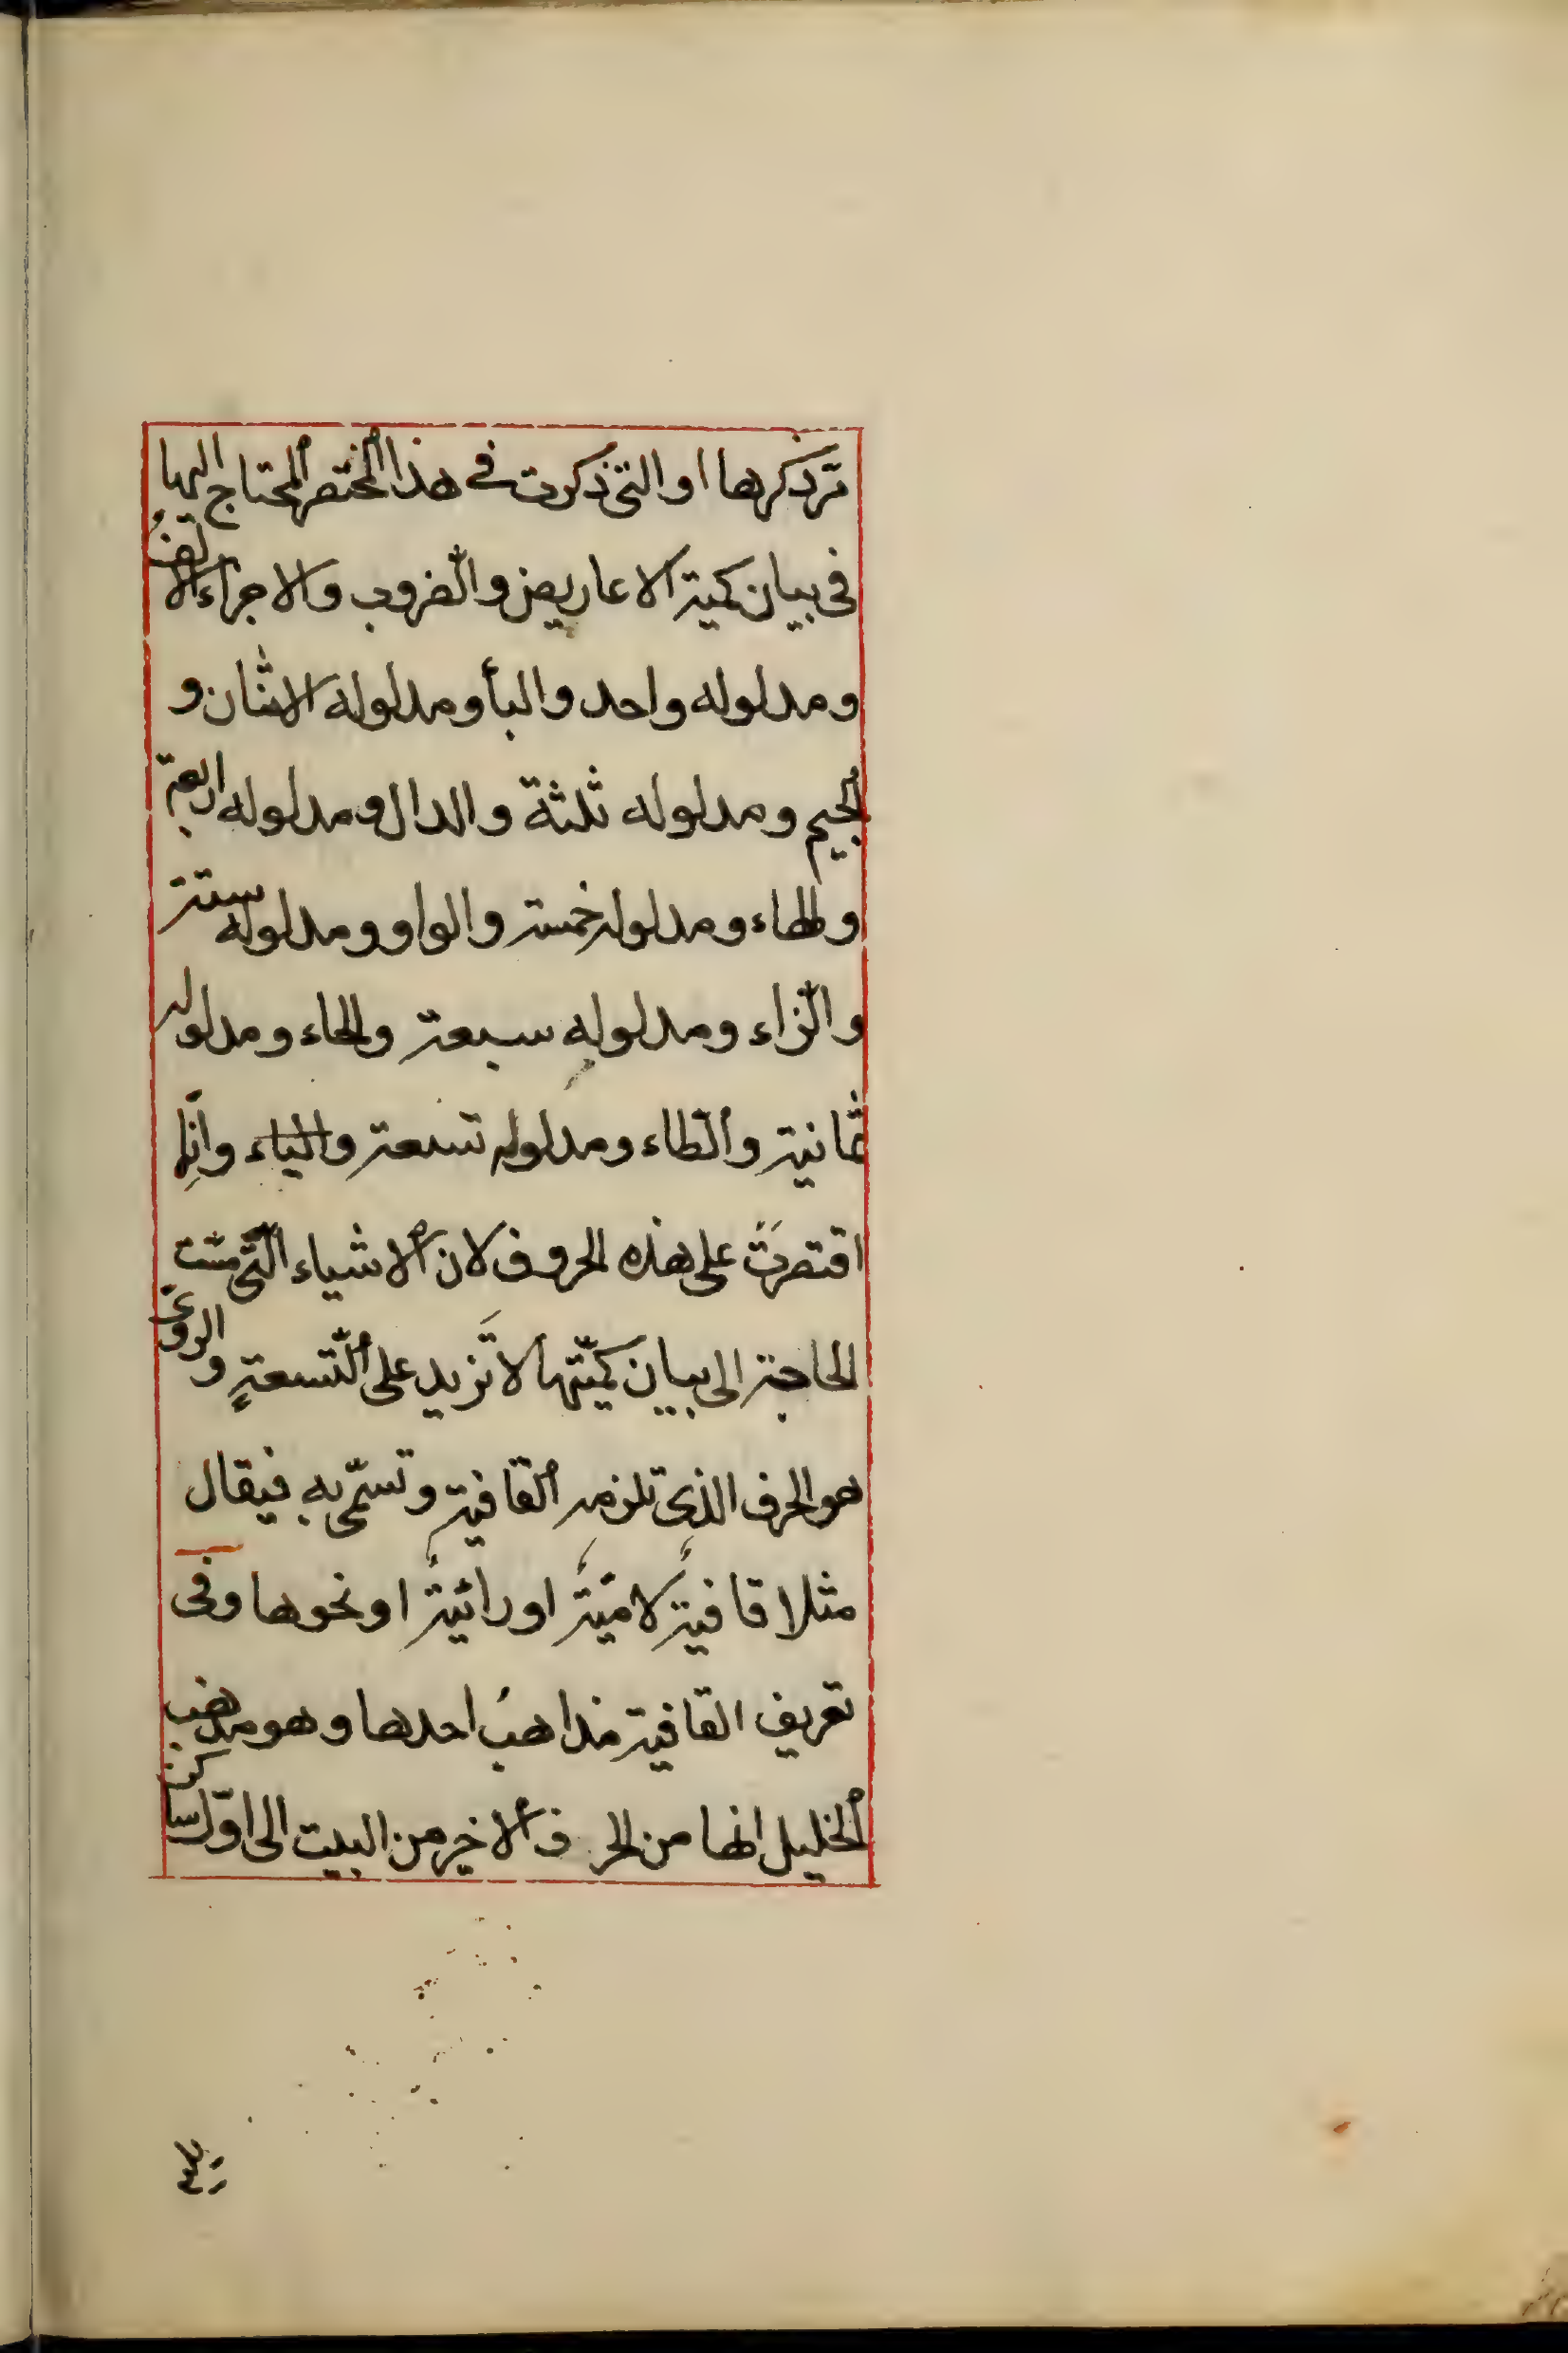 تر ذكرها او التي ذكرت في هذا المختصر المحتاج اليها
في بيان كمية الاعاريض والضروب والاجزاء الالف
ومدلوله واحد والبأ ومدلوله الاثنان و
الجيم ومدلوله ثلثة والدال ومدلوله اربعة
والهاء ومدلوله خمسة والواو ومدلوله ستة
والزاء ومدلوله سبعة والحاء ومدلوله
ثمانية والطاء ومدلوله تسعة والياء وانما
اقتصرت على هذه الحروف لان الاشياء التي مست
الحاجة الى بيان كميّتها لا تزيد على التّسعةِ و الروى
هو الحرف الذي تلزمه القافية وتسمّى بهِ فيقال
مثلا قافية لاميّة او رائية او نحوها وفي
تعريف القافية مذاهبُ احدها وهو مذهب
الخليل انها من الحرف الاخير من البيت الى اوّل ساكن
يليه